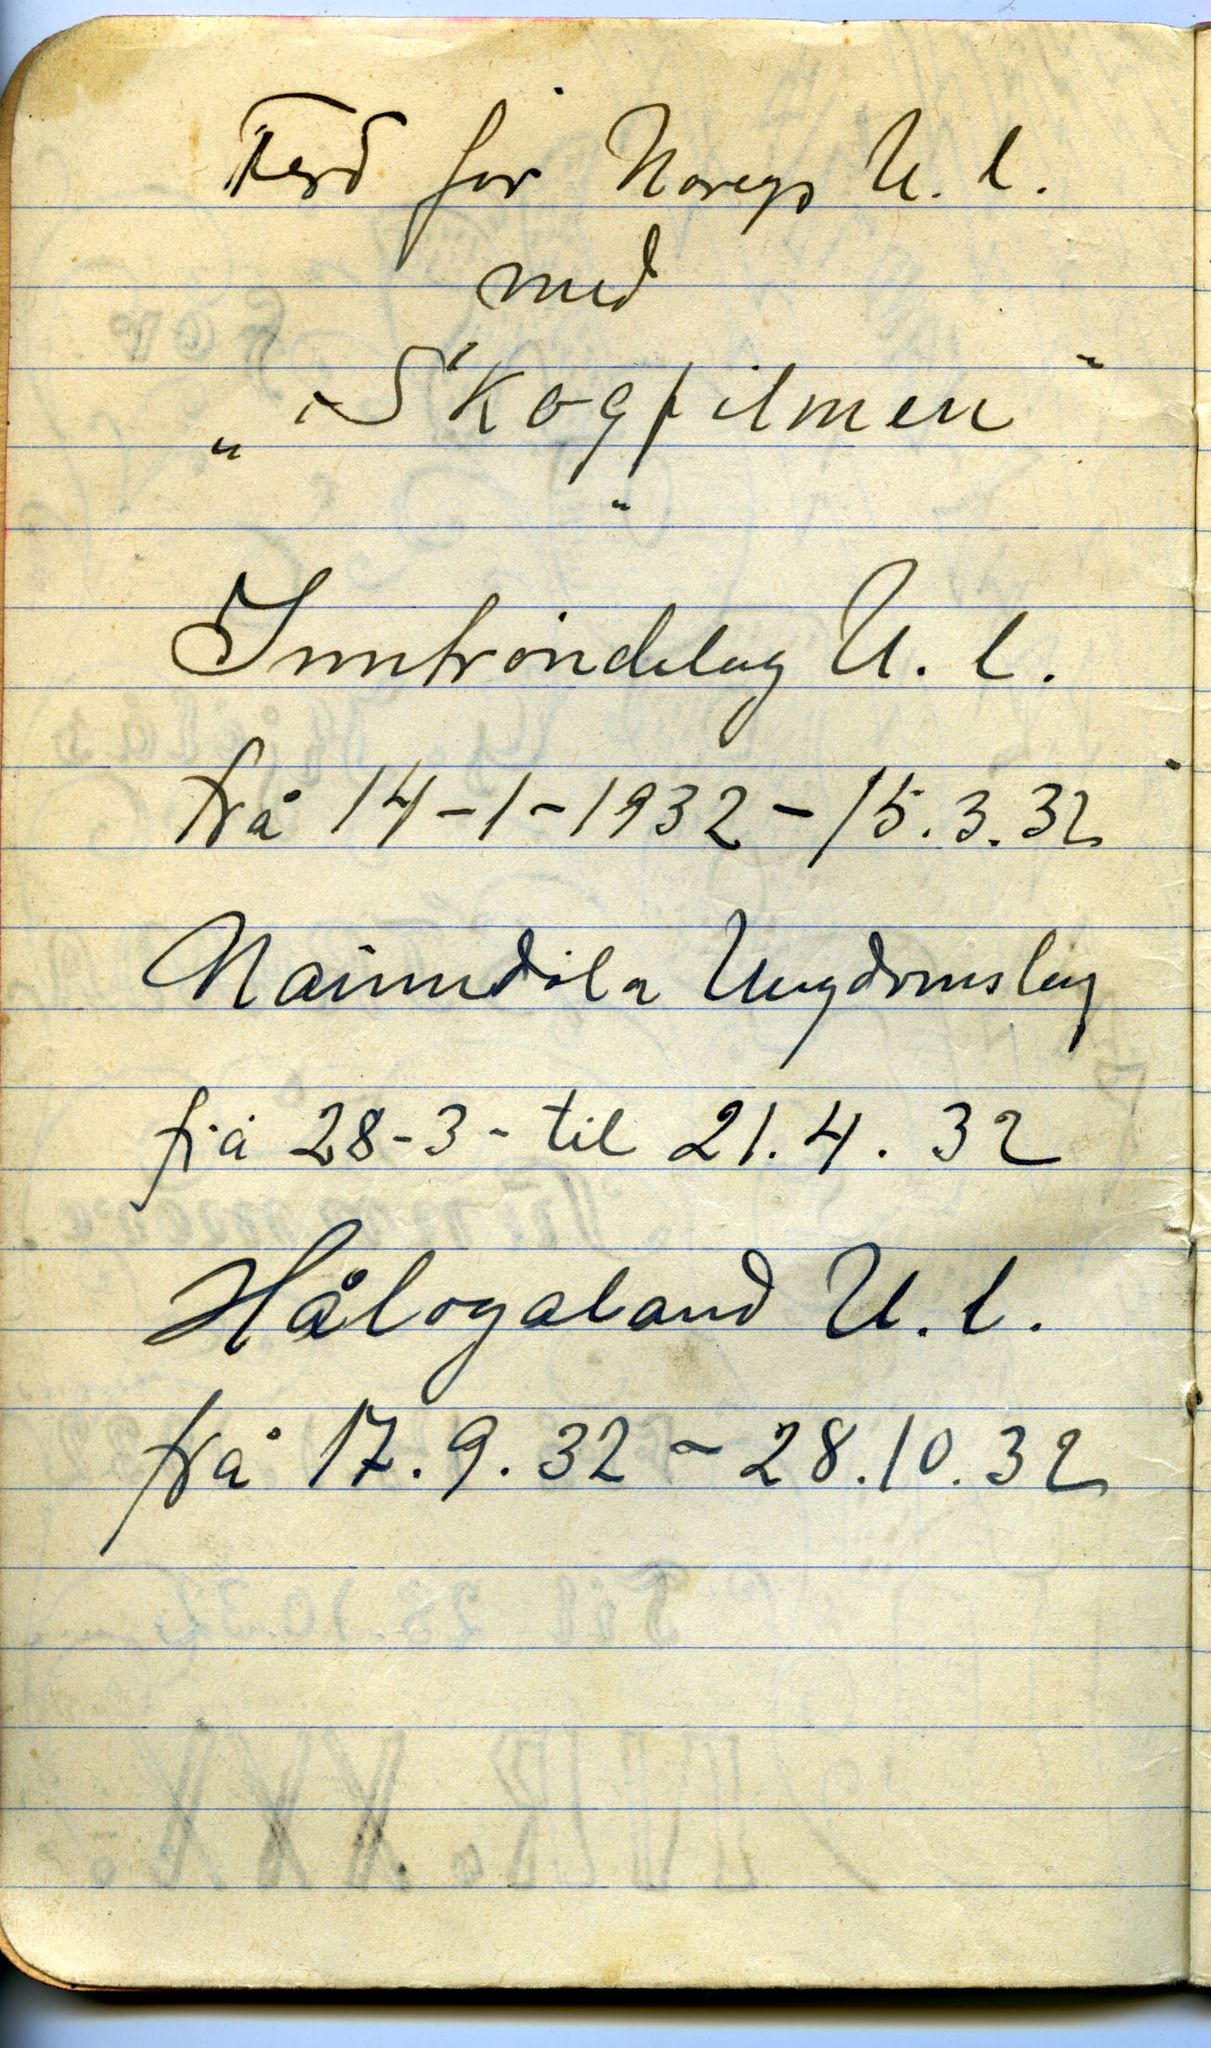 Ferd for Noregs U. l.
med
„Skogfilmen"
Inntröndelag U. l.
frå 14-1-1932 - 15.3.32
Naumdöla Ungdomslag
frå 28-3- til 21.4.32
Hålogaland U. l.
frå 17.9.32 - 28.10.32